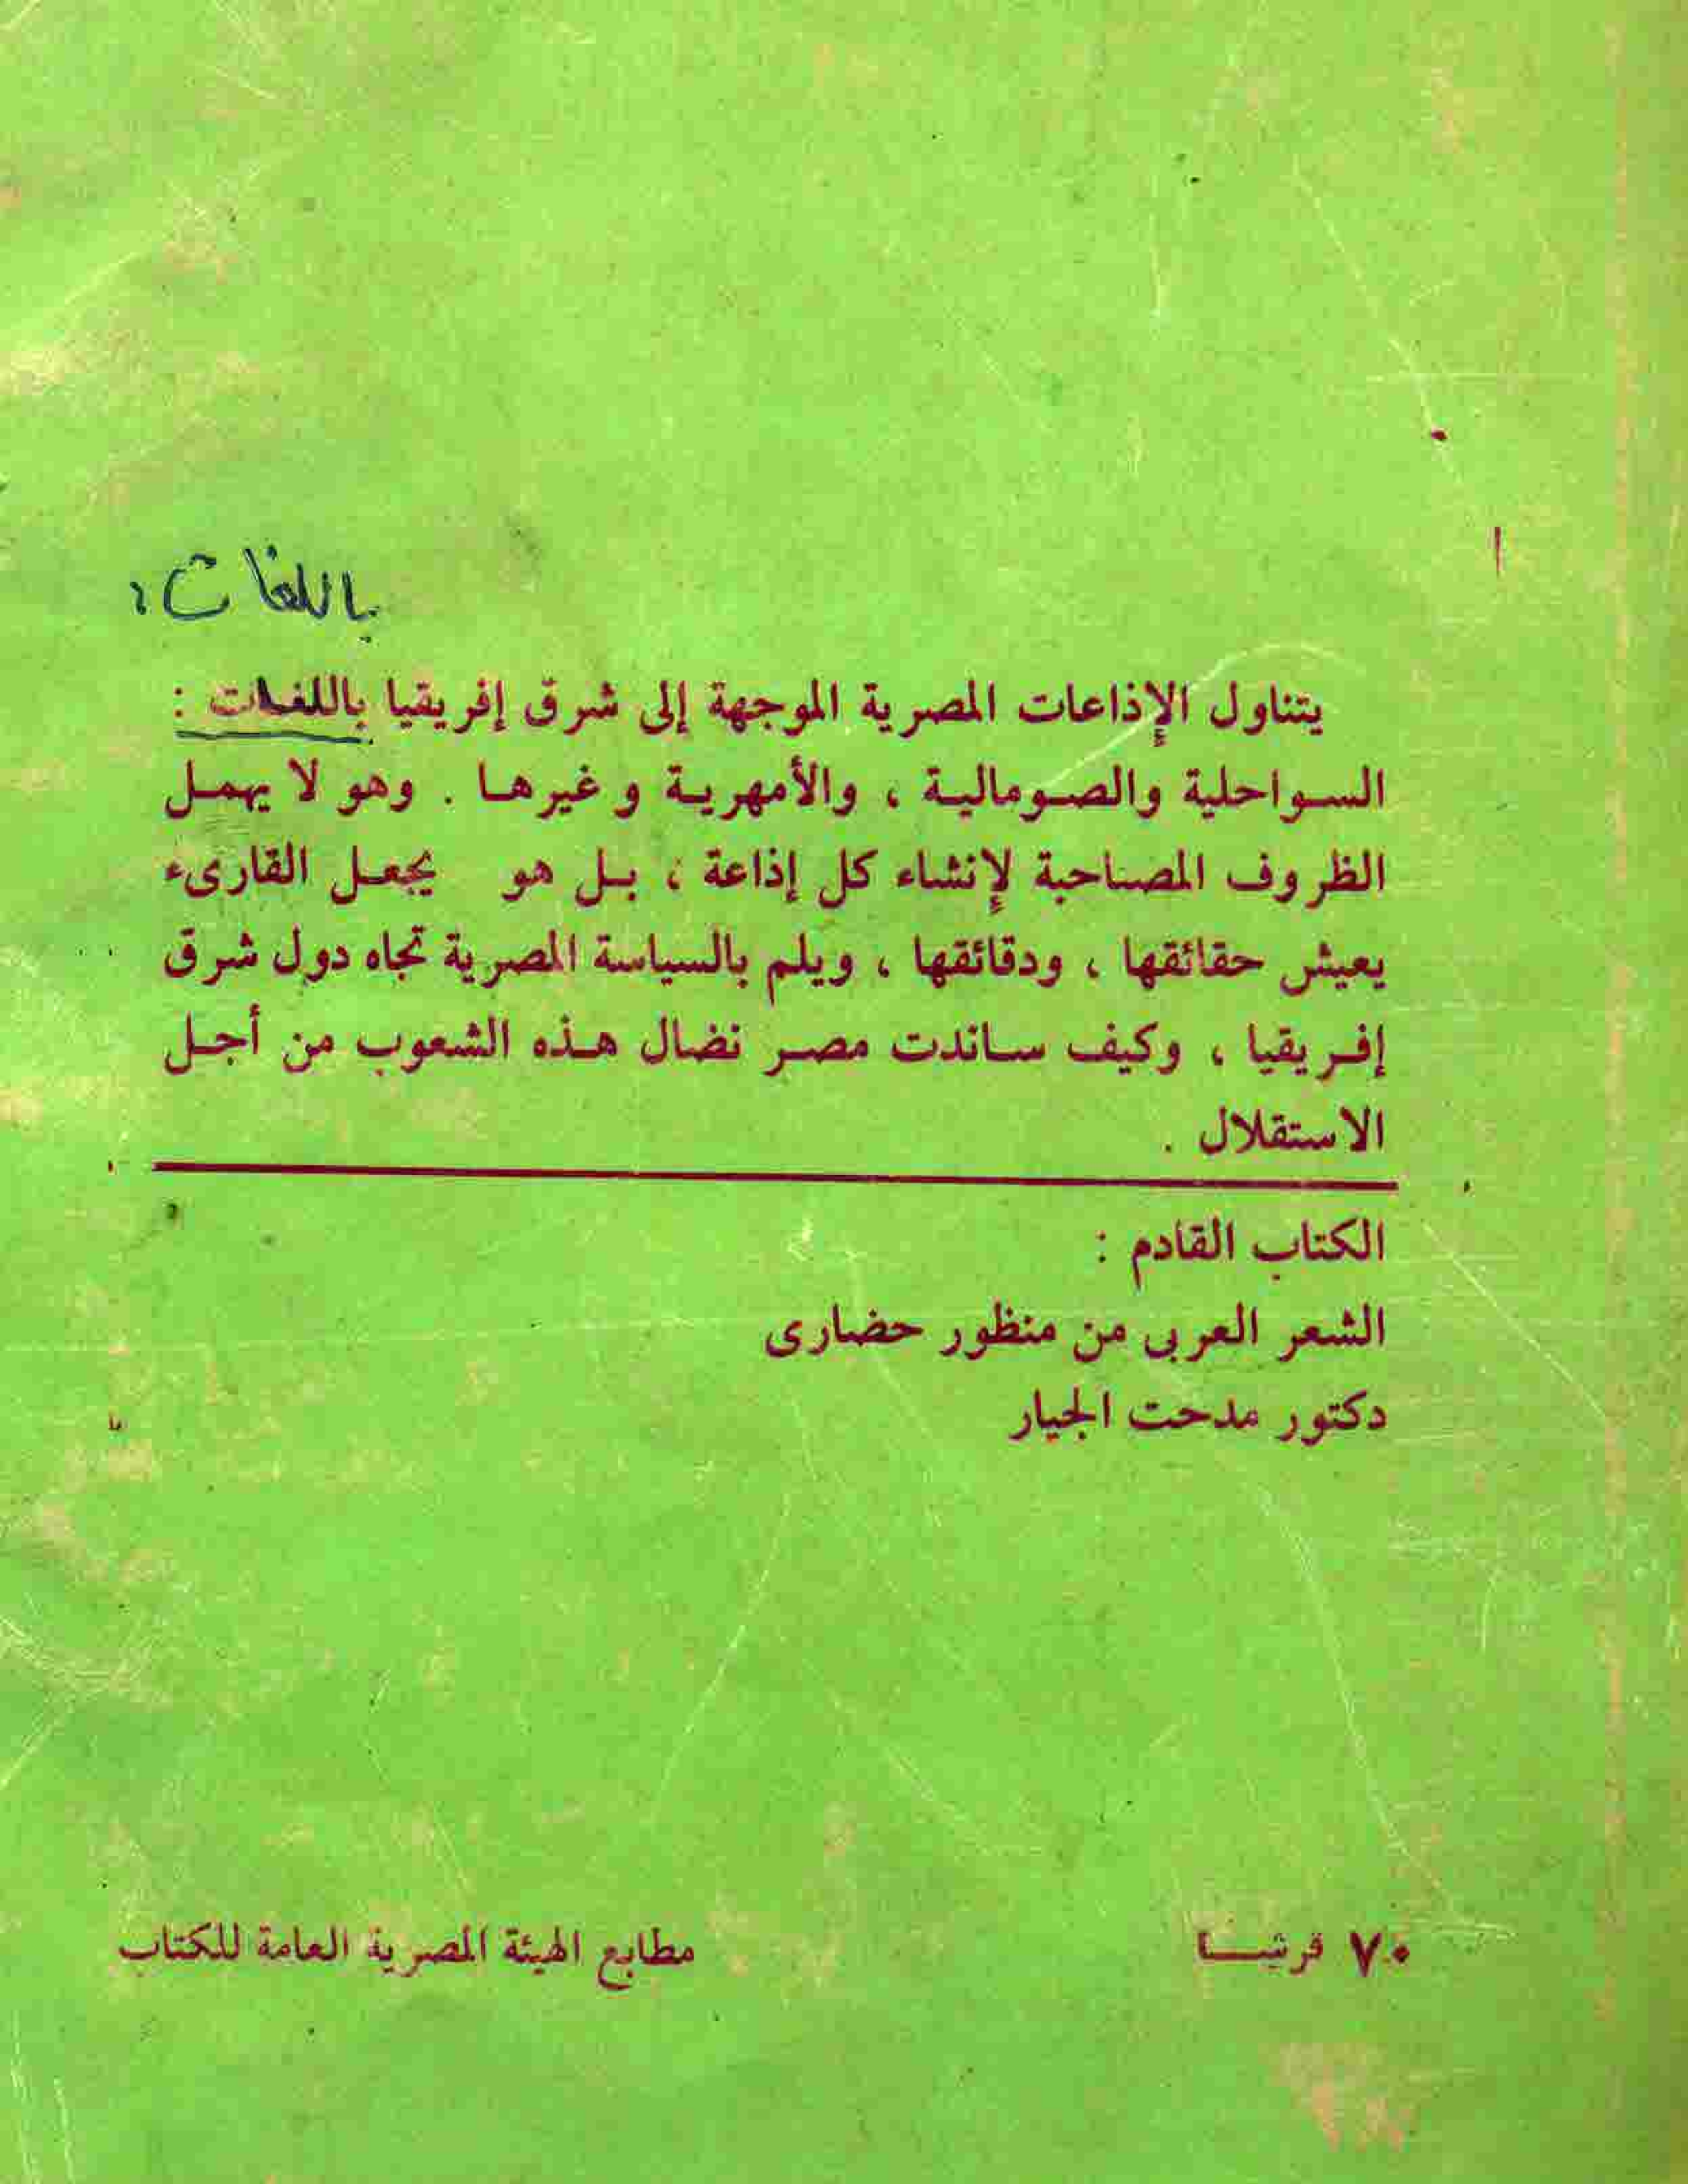 باللغات :
يتناول الإذاعات المصرية الموجهة إلى شرق إفريقيا باللغات :
السواحلية والصومالية ، والأمهرية وغيرها . وهو لا يهمل
الظروف المصاحبة لإنشاء كل إذاعة ، بل هو يجعل القارىء
يعيش حقائقها ، ودقائقها ، ويلم بالسياسة المصرية تجاه دول شرق
إفريقيا ، وكيف ساندت مصر نضال هذه الشعوب من أجل
الاستقلال .
الكتاب القادم :
الشعر العربى من منظور حضارى
دكتور مدحت الجيار
٧٠ قرشا
مطابع الهيئة المصرية العامة للكتاب